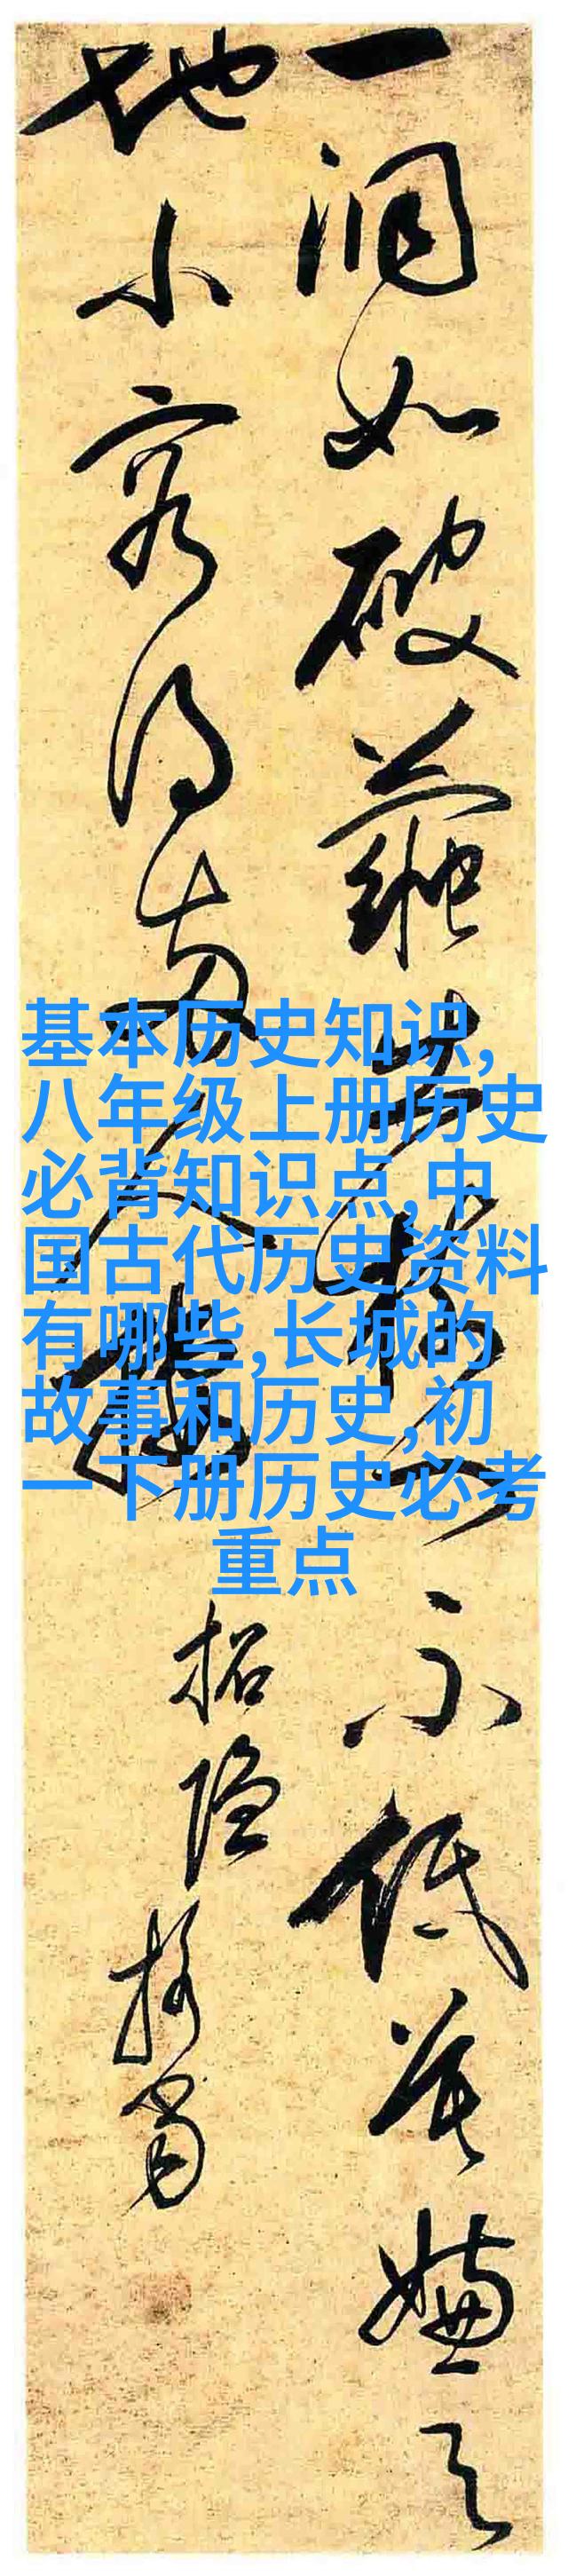 一洞如破不低莫嫌天
地小容得两人棲
招隐
基本历史知识,
八年级上册历史
必背知识点,中
国古代历史资料
有哪些,长城的
故事和历史,初
一下册历史必考
重点